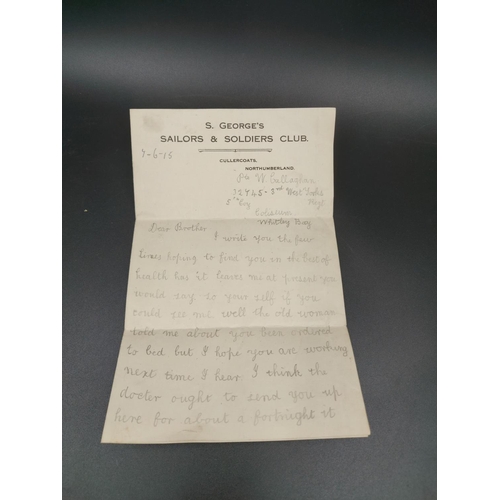 S. GEORGE'S
SAILORS & SOLDIERS CLUB.
7-6-15
CULLERCOATS,
NORTHUMBERLAND.
Pte W. Callaghan
12745 - 2nd West Yorks
Coy Regt
Coliseum
Whitley Bay
Dear Brother
I write you the few
lines hoping to find you in the best of
health has it leaves me at present you
would say so your self if you
could see me, well the old woman
told me about you been ordered
to bed but I hope you are working
next time I hear I think the
doctor ought to send you up
here for about a fortnight it